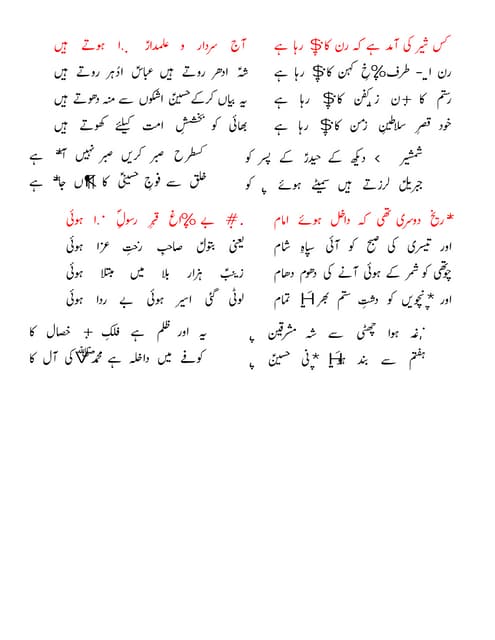 کس شیر کی آمد ہے کہ رن کا$ رہا ہے
رن ا۔- طرف %خِ کہن کا$ رہا ہے
رستم کا + ن زیرِ کفن کا$ رہا ہے
خود قصرِ سلاطینِ زمن کا$ رہا ہے
شمشیر > دیکھ کے حیدرؑ کے پسر کو
جبریلؑ لرزتے ہیں سمیٹے ہوئے کو
آج سردار و علمدارؑ .ا ہوتے ہیں
شہؑ ادھر روتے ہیں عباسؑ ادُہر روتے ہیں
یہ بیاں کرکے حسینؑ اشکوں سے منہ دھوتے ہیں
بھائی کو بخششِ امت کیلئے کھوتے ہیں
کسطرح صبر کریں صبر نہیں ہے
خلق سے فوجِ حسینیؑ کا ہے
*ریخ دوسری تھی کہ داخل ہوئے امام
اور تیسری کی صبح کو آئی سپاہِ شام
چوتھی کو شمر کے ہوئی آنے کی دھوم دھام
اور *نچویں کو دشتِ ستم بھر H تمام
غہ ہوا چھٹی سے شہ مشرقین
ہفتم سے بند *نی حسینؑ
#. بے %اغ قبرِ رسولؐ .ا ہوئی
یعنی بتولؑ صاحبِ رختِ عزا ہوئی
زینبؑ ہزار بلا میں مبتلا ہوئی
لوٹی گئی اسیر ہوئی بے ردا ہوئی
یہ اور ظلم ہے فلکِ + خصال کا
کوفے میں داخلہ ہے محمدﷺ کی آل کا